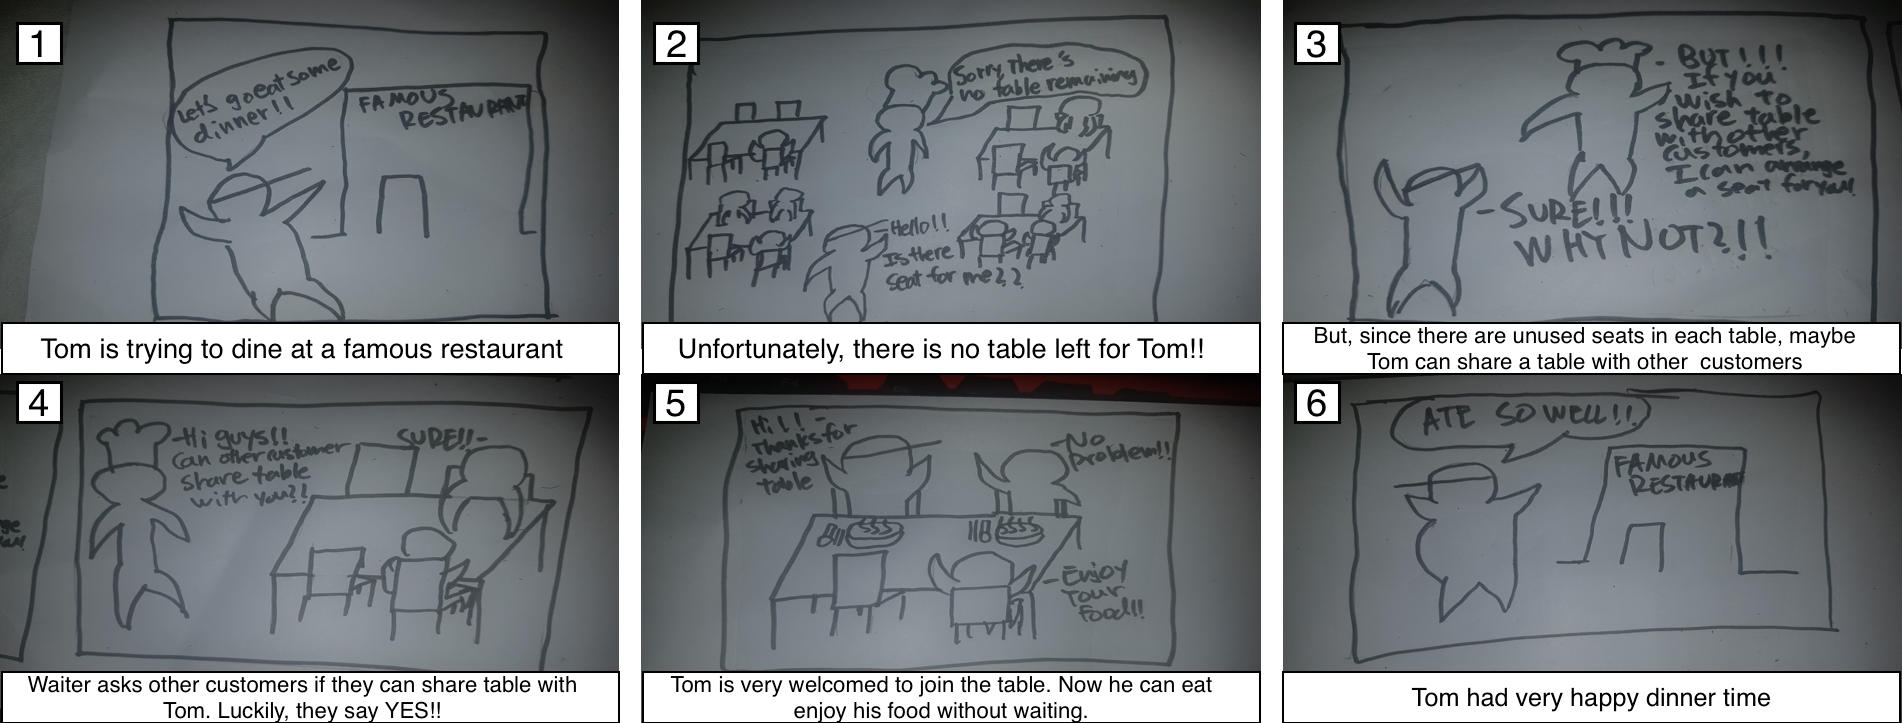 1
Let's go eat some
dinner!!
FAMOUS
RESTAURANT
Tom is trying to dine at a famous restaurant
2
Sorry, There's
no table remaining
Hello!!
Is there
seat for me??
Unfortunately, there is no table left for Tom!!
3
- BUT!!!
If you
wish to
share table
with other
customers,
I can arrange
a seat for you!!
- SURE!!!
WHY NOT?!!
But, since there are unused seats in each table, maybe
Tom can share a table with other customers
4
- Hi guys!!
Can other customer
share table
with you??
SURE!! -
Waiter asks other customers if they can share table with
Tom. Luckily, they say YES!!
5
Hi!! -
Thanks for
sharing
table
- No
problem!!
- Enjoy
Your
food!!
Tom is very welcomed to join the table. Now he can eat
enjoy his food without waiting.
6
ATE SO WELL!!
FAMOUS
RESTAURANT
Tom had very happy dinner time